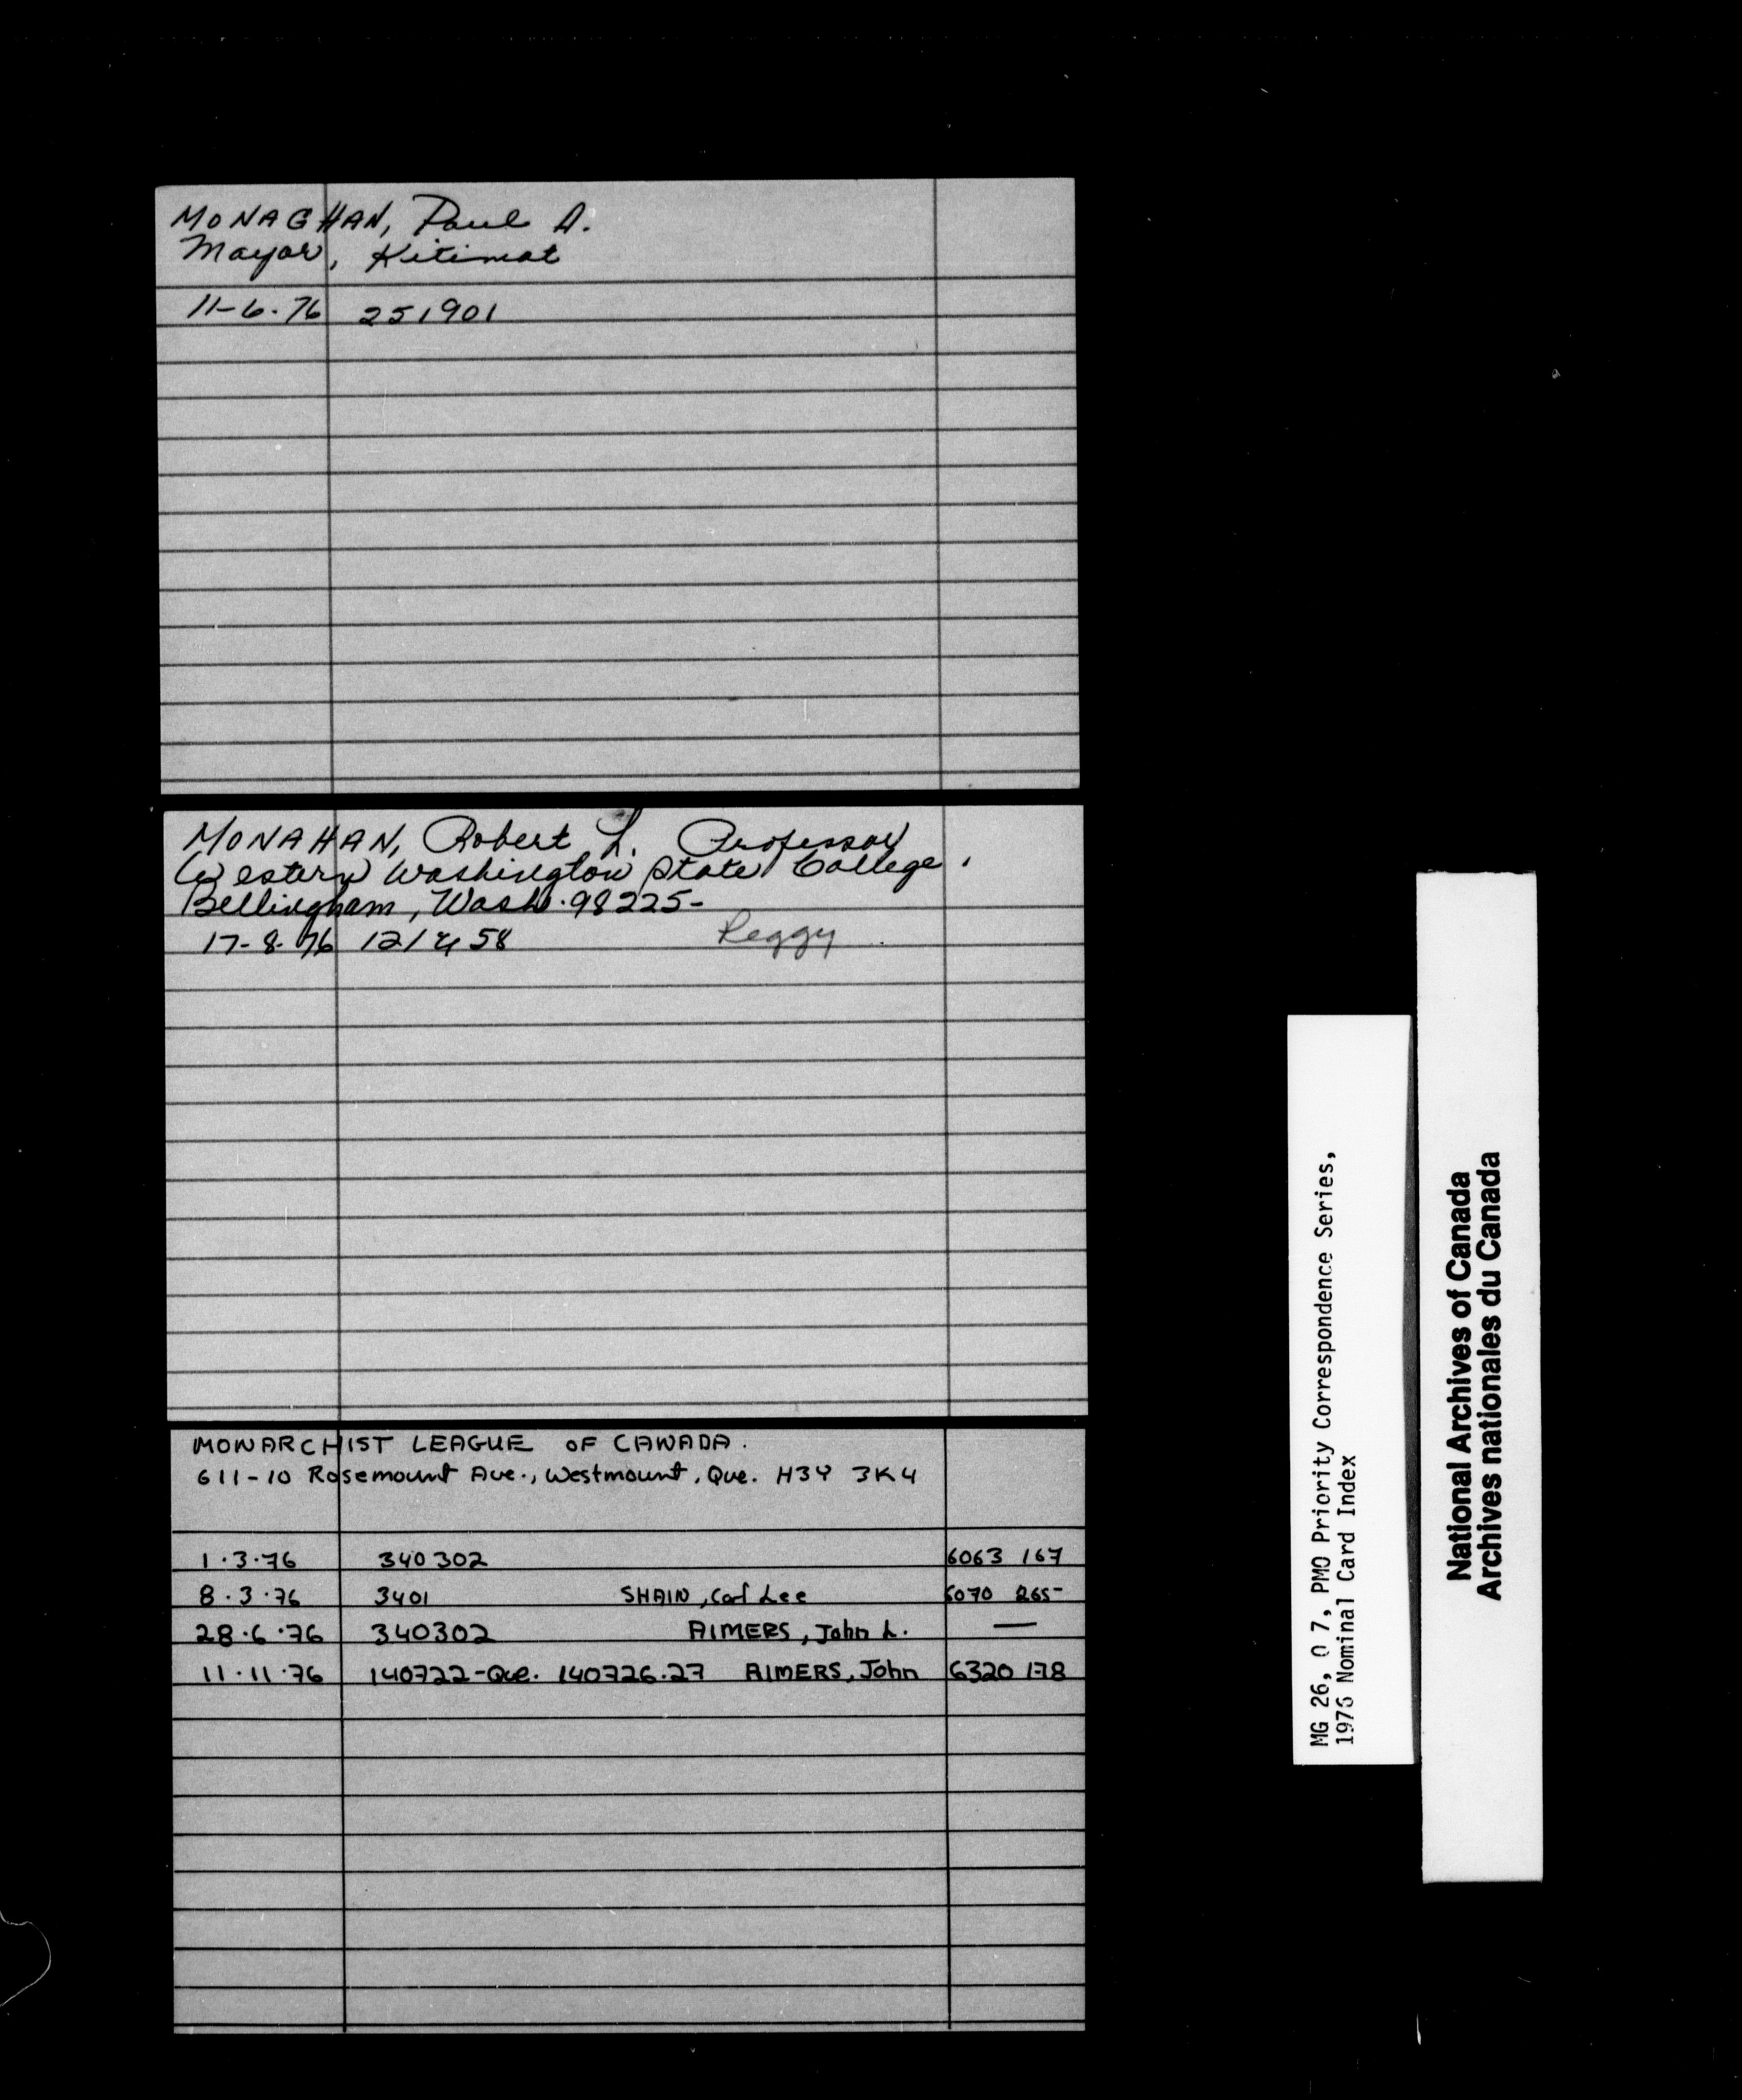 MONAGHAN, Paul A.
Mayor, Kitimat
11-6-76 251901
MONAHAN, Robert L. Professor
Western Washington State College.
Bellingham, Wash. 98225-
17-8-76 Peggy
MONARCHIST LEAGUE OF CANADA.
611-10 Rosemount Ave., Westmount, Que. H3Y 3K4
1.3.76 340302 6063 167
8.3.76 3401 SHAIN, Carl Lee 6070 265-
28.6.76 340302 AIMERS, John L. —
11.11.76 140722-Que. 140726.27 AIMERS, John 6320 178
MG 26, O 7, PMO Priority Correspondence Series,
1976 Nominal Card Index
National Archives of Canada
Archives nationales du Canada